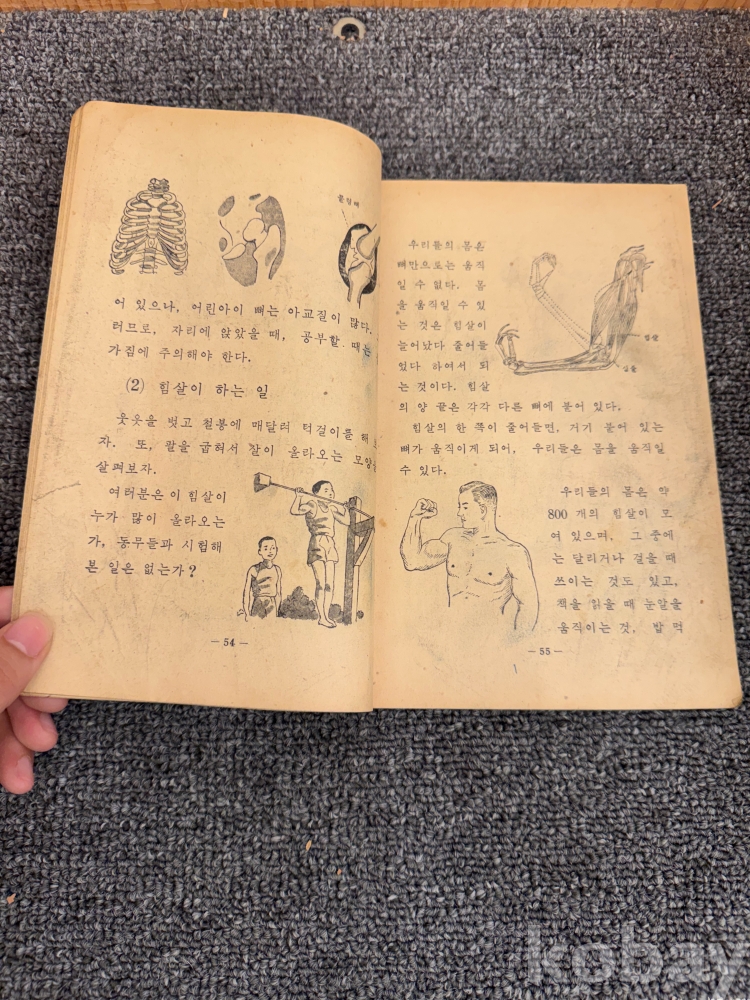 어 있으나, 어린아이 뼈는 아교질이 많다,
러므로, 자리에 앉았을 때, 공부할 때는
가짐에 주의해야 한다.
(2) 힘살이 하는 일
웃옷을 벗고 철봉에 매달려 턱걸이를 해
자. 또, 팔을 굽혀서 살이 올라오는 모양을
살펴보자.
여러분은 이 힘살이
누가 많이 올라오는
가, 동무들과 시험해
본 일은 없는가?
— 54 —
우리들의 몸은
뼈만으로는 움직
일 수 없다. 몸
을 움직일 수 있
는 것은 힘살이
늘어났다 줄어들
었다 하여서 되
는 것이다. 힘살
의 양 끝은 각각 다른 뼈에 붙어 있다,
힘살의 한 쪽이 줄어들면, 거기 붙어 있는
뼈가 움직이게 되어, 우리들은 몸을 움직일
수 있다.
힘살
힘줄
우리들의 몸은 약
800 개의 힘살이 모
여 있으며, 그 중에
는 달리거나 걸을 때
쓰이는 것도 있고,
책을 읽을 때 눈알을
움직이는 것, 밥 먹
— 55 —
kobay